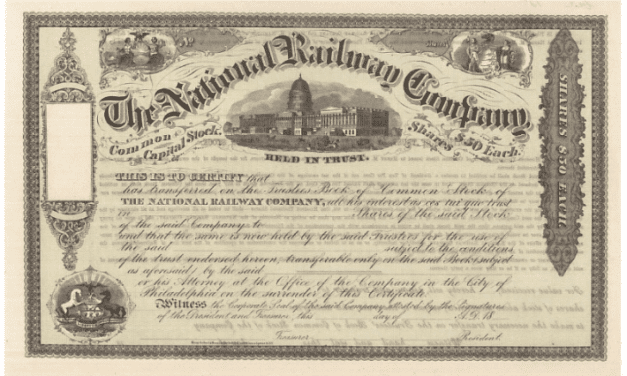 No
The National Railway Company,
Common Capital Stock. Shares $50 Each.
HELD IN TRUST.
SHARES $50 EACH
THIS IS TO CERTIFY that
has transferred on the Trustees Book of Common Stock of
THE NATIONAL RAILWAY COMPANY, all his interest as cestui que trust
in Shares of the said Stock
of the said Company to
and that the same is now held by the said Trustees for the use of
the said subject to the conditions
of the trust endorsed hereon, transferable only on the said Book subject
as aforesaid, by the said
or his Attorney at the Office of the Company in the City of
Philadelphia on the surrender of this Certificate.
Witness the Corporate Seal of the said Company attested by the Signatures
of the President and Treasurer this day of A.D. 18
Treasurer President